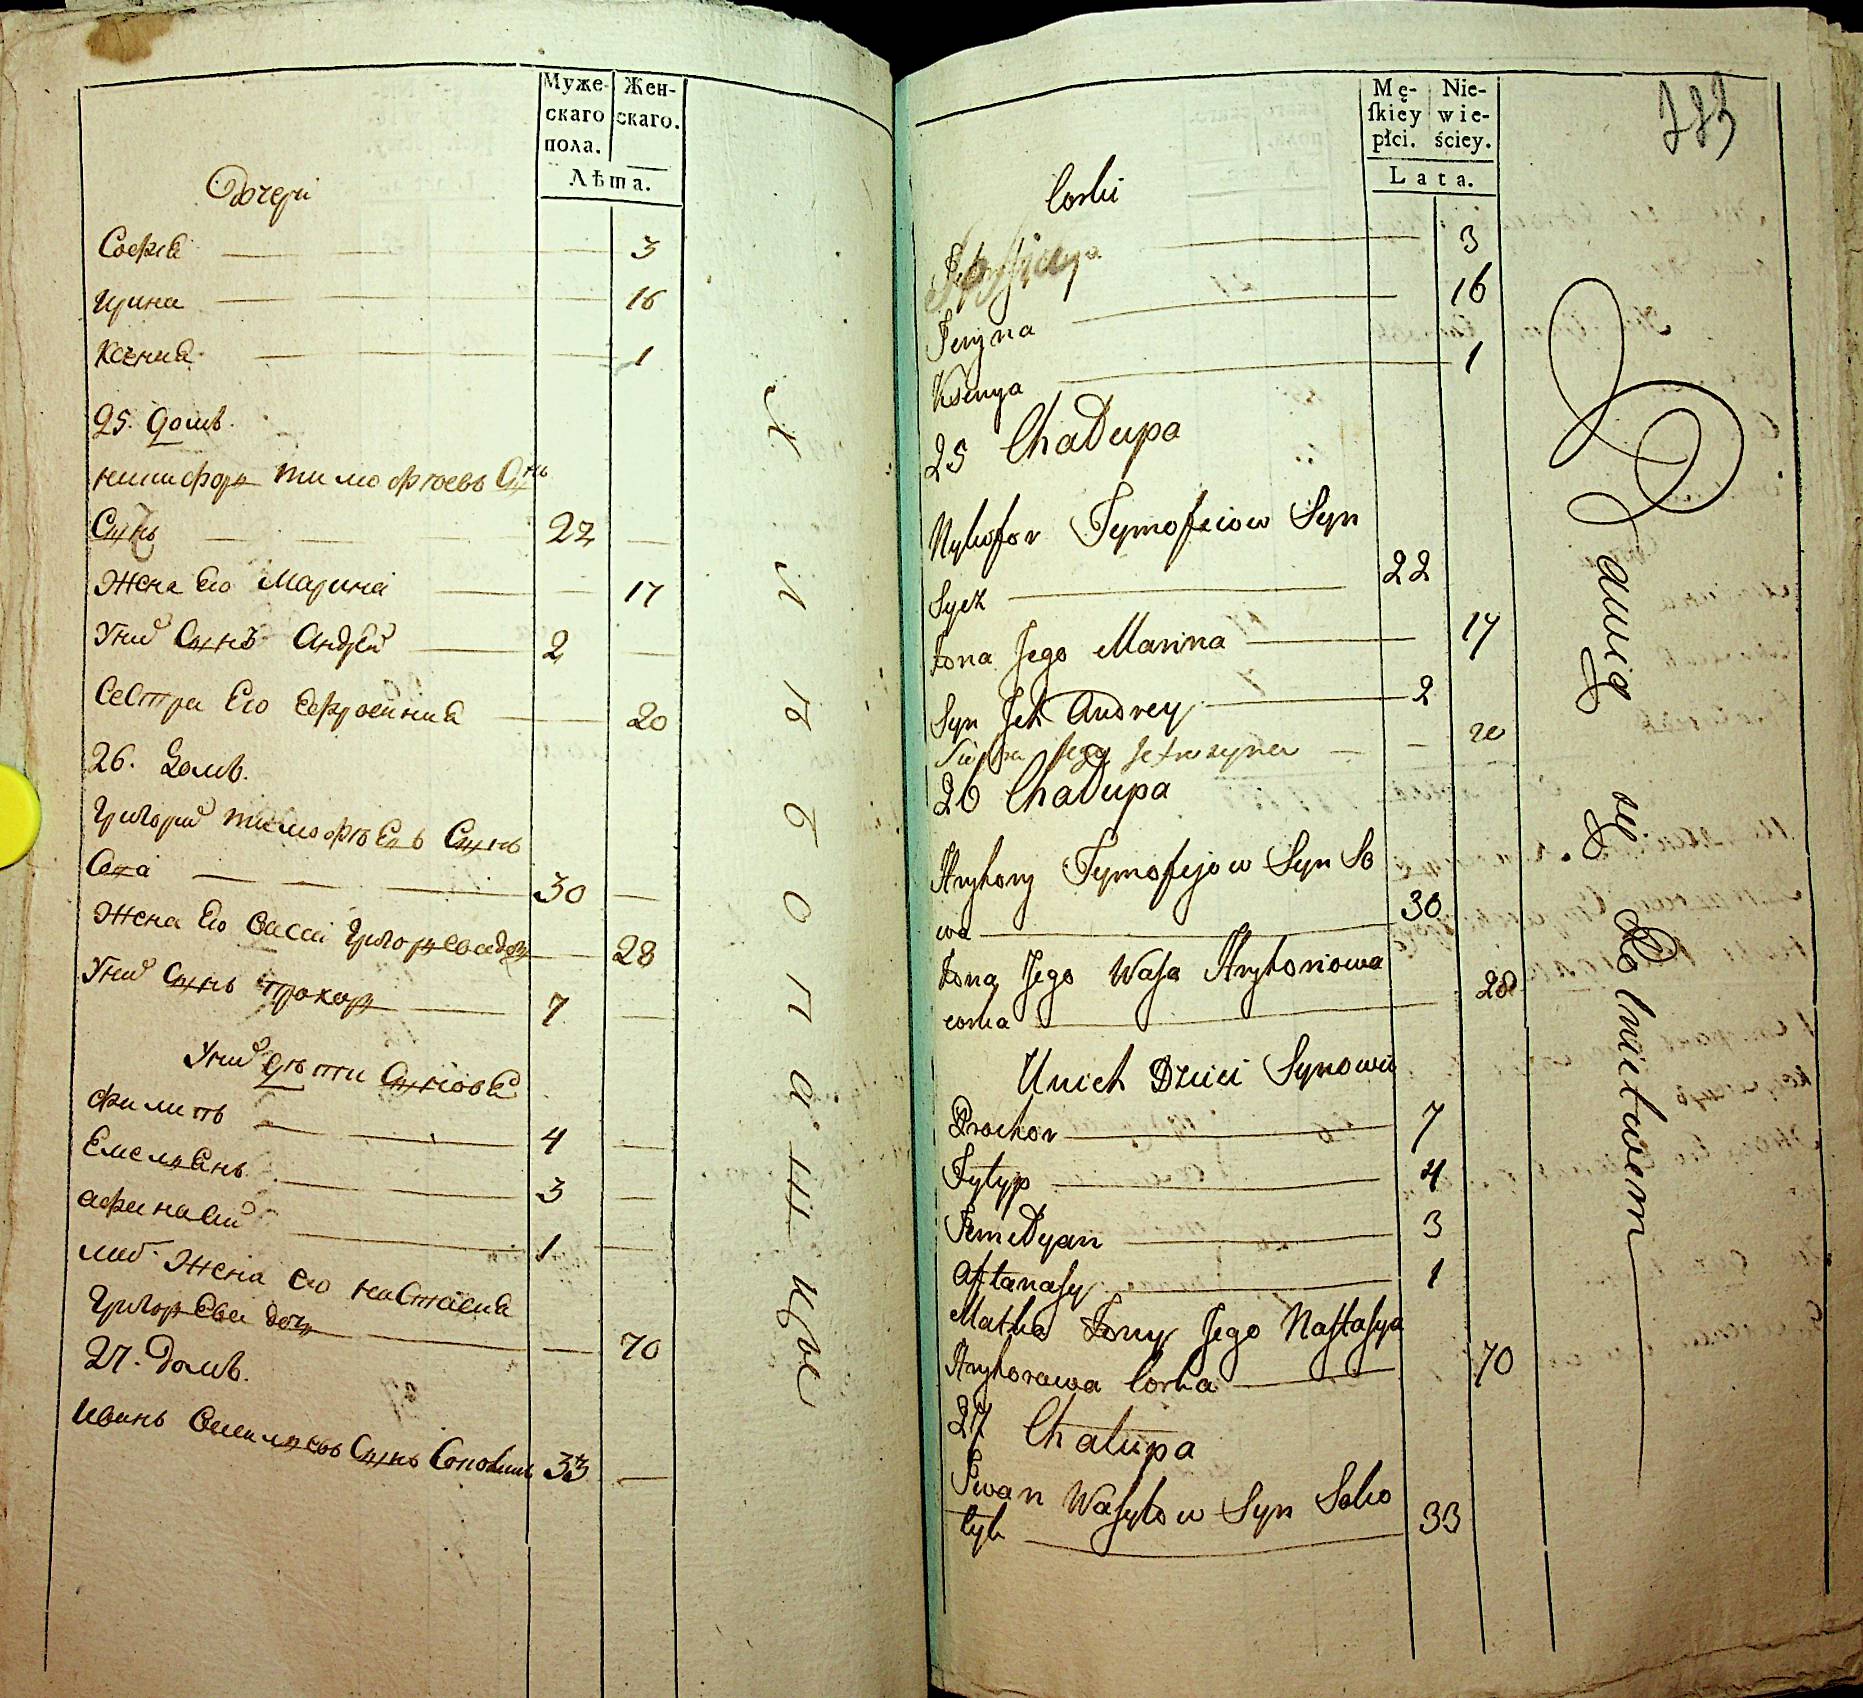 Муже- Жен-
скаго скаго.
пола.
Лѣта.
Дочери
Софиа 3
Ирина 16
Ксениа 1
25. домъ.
никифоръ тимофѣевъ Сынъ
Сычь 22
Жена Его Марина 17
Уних Сынъ Андрей 2
Сестра Его Ефросиниа 20
26. Домъ.
Григорий тимофѣевъ Сынъ
Сова 30
Жена Его Васса Григорьева дочь 28
Уних Сынъ прохоръ 7
Уних дѣти Сыновя
Филипъ 4
Емельянъ 3
афанасий 1
мат. Жена его настасиа
Григорьева дочь 70
27. Домъ.
Иванъ Василиевъ Сынъ 33
хлѣбопашцы
Mę- Nie-
ſkiey wie-
płci. ściey.
Lata.
Corki
3
Jeryna 16
Ksenya 1
25 Chałupa
Nykofor Tymofeiow Syn
Sycz 22
Żona Jego Marina 17
Syn Ich Andrey 2
Siestra Jego Jefrosynia 20
26 Chałupa
Hryhory Tymofejow Syn So
wa 30
Żona Jego Wasa Hryhoriowa
corka 28
Unich Dzieci Synowie
Prochor 7
Fylyp 4
Jemelyan 3
Aftanasy 1
Matka Żony Jego Nastasya
Hryhorowa Corka 70
27 Chalupa
Iwan Wasylow Syn Soko
lyk 33
Bawią się Rolnictwem